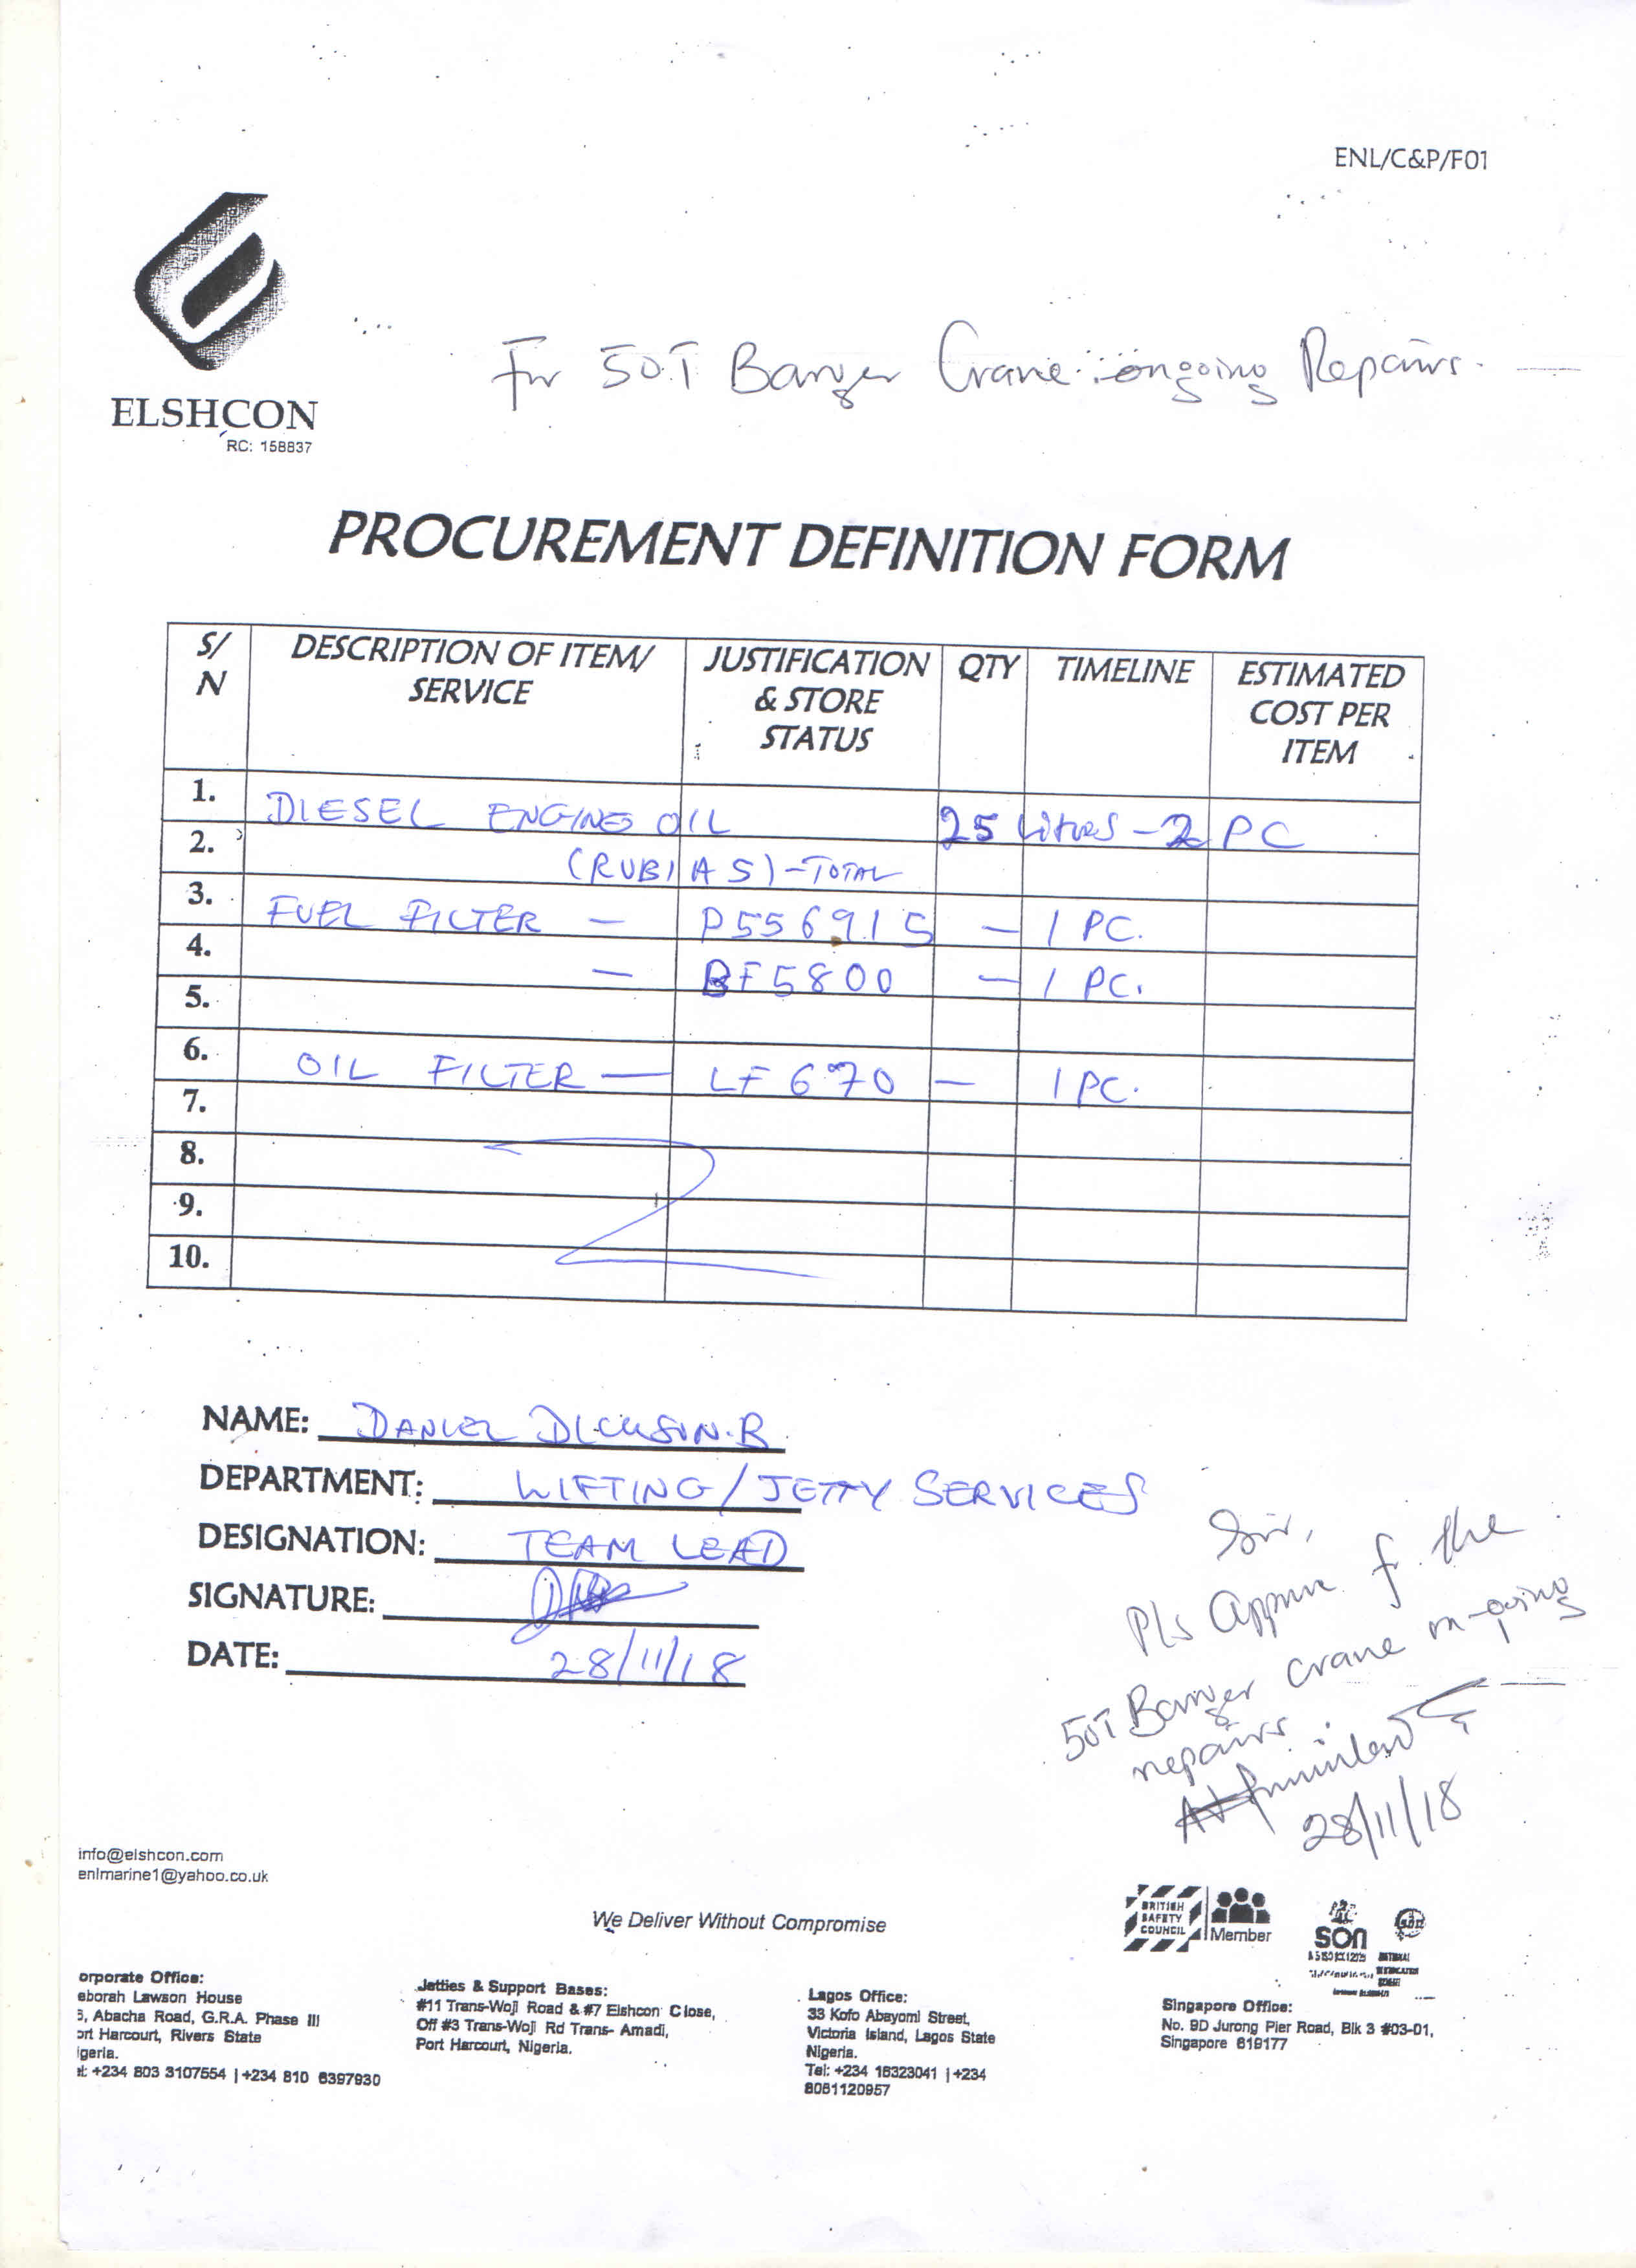 ENL/C&P/F01
ELSHCON
RC: 158837
For 50T Banger Crane ongoing Repairs.
PROCUREMENT DEFINITION FORM
S/N DESCRIPTION OF ITEM/ SERVICE JUSTIFICATION & STORE STATUS QTY TIMELINE ESTIMATED COST PER ITEM
1. DIESEL ENGINE OIL 25 Litres - 2 PC
2. (RUBIA S) - TOTAL
3. FUEL FILTER - P556915 - 1 PC.
4. - BF5800 - 1 PC.
5.
6. OIL FILTER - LF670 - 1 PC.
7.
8.
9.
10.
NAME: DANIEL DICKSON.B
DEPARTMENT: LIFTING/JETTY SERVICES
DESIGNATION: TEAM LEAD
SIGNATURE:
DATE: 28/11/18
Sir,
Pls Approve for the
50T Banger crane on-going
repairs.
28/11/18
info@elshcon.com
enlmarine1@yahoo.co.uk
We Deliver Without Compromise
BRITISH
SAFETY
COUNCIL
Member
SON
orporate Office:
eborah Lawson House
, Abacha Road, G.R.A. Phase III
ort Harcourt, Rivers State
igeria.
: +234 803 3107554 | +234 810 6397930
Jetties & Support Bases:
#11 Trans-Woji Road & #7 Elshcon Close,
Off #3 Trans-Woji Rd Trans- Amadi,
Port Harcourt, Nigeria.
Lagos Office:
33 Kofo Abayomi Street,
Victoria Island, Lagos State
Nigeria.
Tel: +234 16323041 | +234
8081120957
Singapore Office:
No. 9D Jurong Pier Road, Blk 3 #03-01,
Singapore 619177